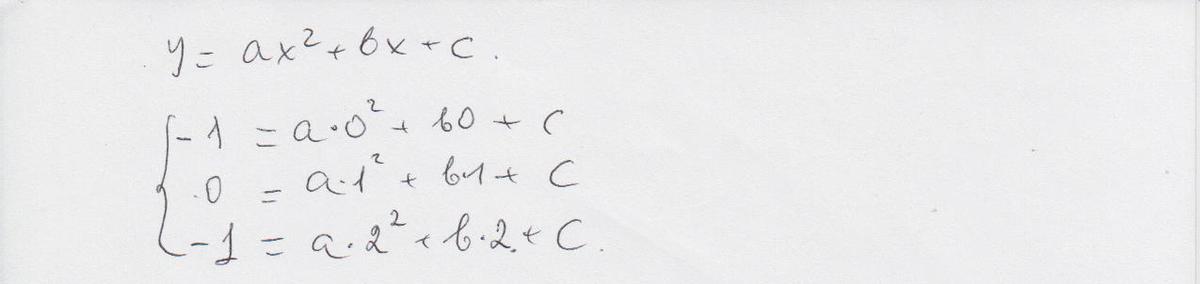 y = ax² + bx + c.
-1 = a·0² + b0 + c
0 = a·1² + b·1 + c
-1 = a·2² + b·2 + c.